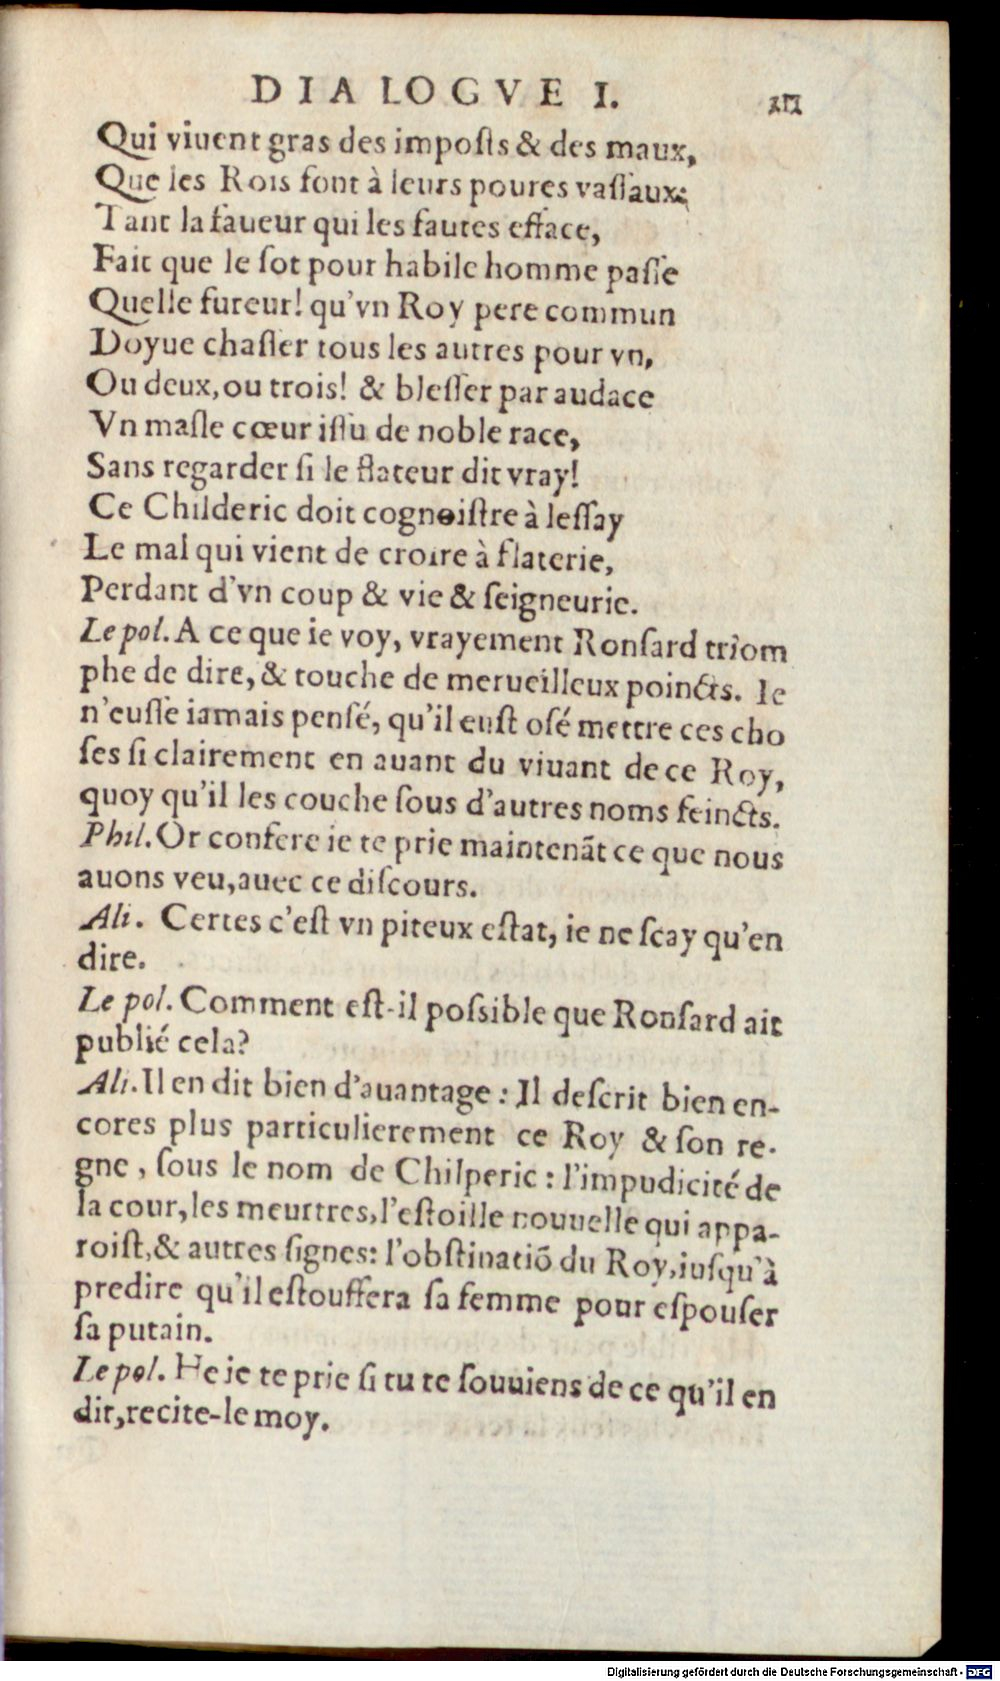 DIALOGVE I.
Qui viuent gras des imposts & des maux,
Que les Rois font à leurs poures vassaux:
Tant la faueur qui les fautes efface,
Fait que le sot pour habile homme passe
Quelle fureur! qu'vn Roy pere commun
Doyue chasser tous les autres pour vn,
Ou deux, ou trois! & blesser par audace
Vn masle cœur issu de noble race,
Sans regarder si le flateur dit vray!
Ce Childeric doit cognoistre à lessay
Le mal qui vient de croire à flaterie,
Perdant d'vn coup & vie & seigneurie.
Le pol. A ce que ie voy, vrayement Ronsard triom
phe de dire, & touche de merueilleux poincts. Ie
n'eusse iamais pensé, qu'il eust osé mettre ces cho
ses si clairement en auant du viuant de ce Roy,
quoy qu'il les couche sous d'autres noms feincts.
Phil. Or confere ie te prie maintenãt ce que nous
auons veu, auec ce discours.
Ali. Certes c'est vn piteux estat, ie ne scay qu'en
dire.
Le pol. Comment est-il possible que Ronsard ait
publié cela?
Ali. Il en dit bien d'auantage : Il descrit bien en-
cores plus particulierement ce Roy & son re-
gne, sous le nom de Chilperic : l'impudicité de
la cour, les meurtres, l'estoille nouuelle qui appa-
roist, & autres signes: l'obstinatiõ du Roy, iusqu'à
predire qu'il estouffera sa femme pour espouser
sa putain.
Le pol. He ie te prie si tu te souuiens de ce qu'il en
dit, recite-le moy.
Digitalisierung gefördert durch die Deutsche Forschungsgemeinschaft - DFG